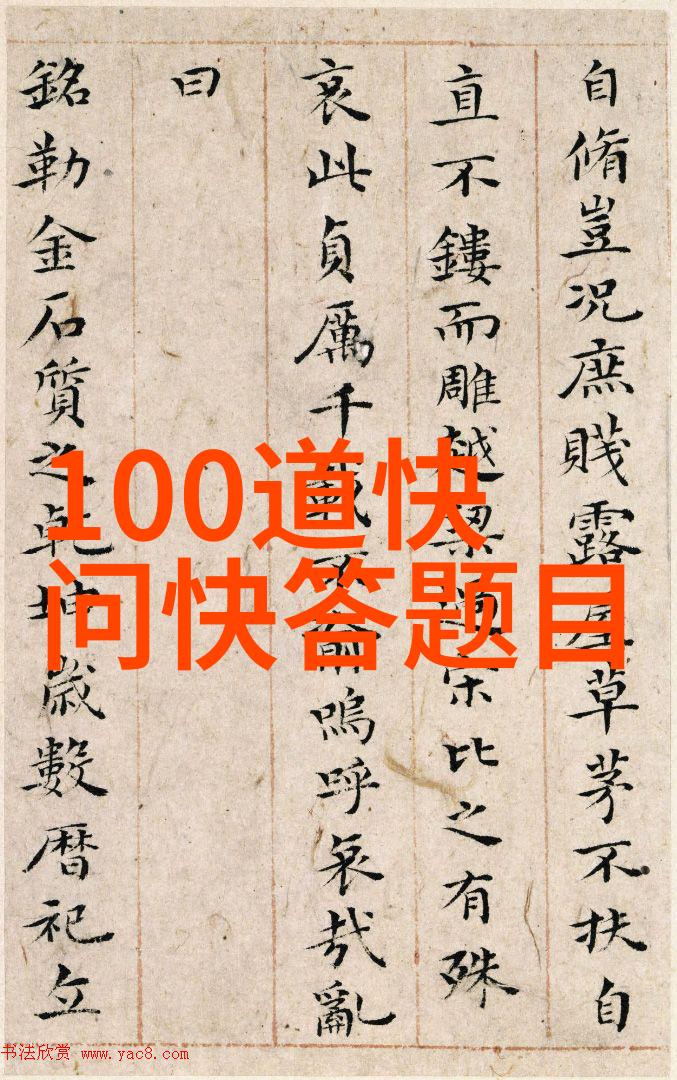 自脩豈況庶賤露屋草茅不扶自
直不鏤而雕越梁過宋比之有殊
哀此貞厲千載不渝嗚呼哀哉亂
曰
銘勒金石質之乾坤歲數暦祀立
100道快
问快答题目
书法欣赏 www.yac8.com